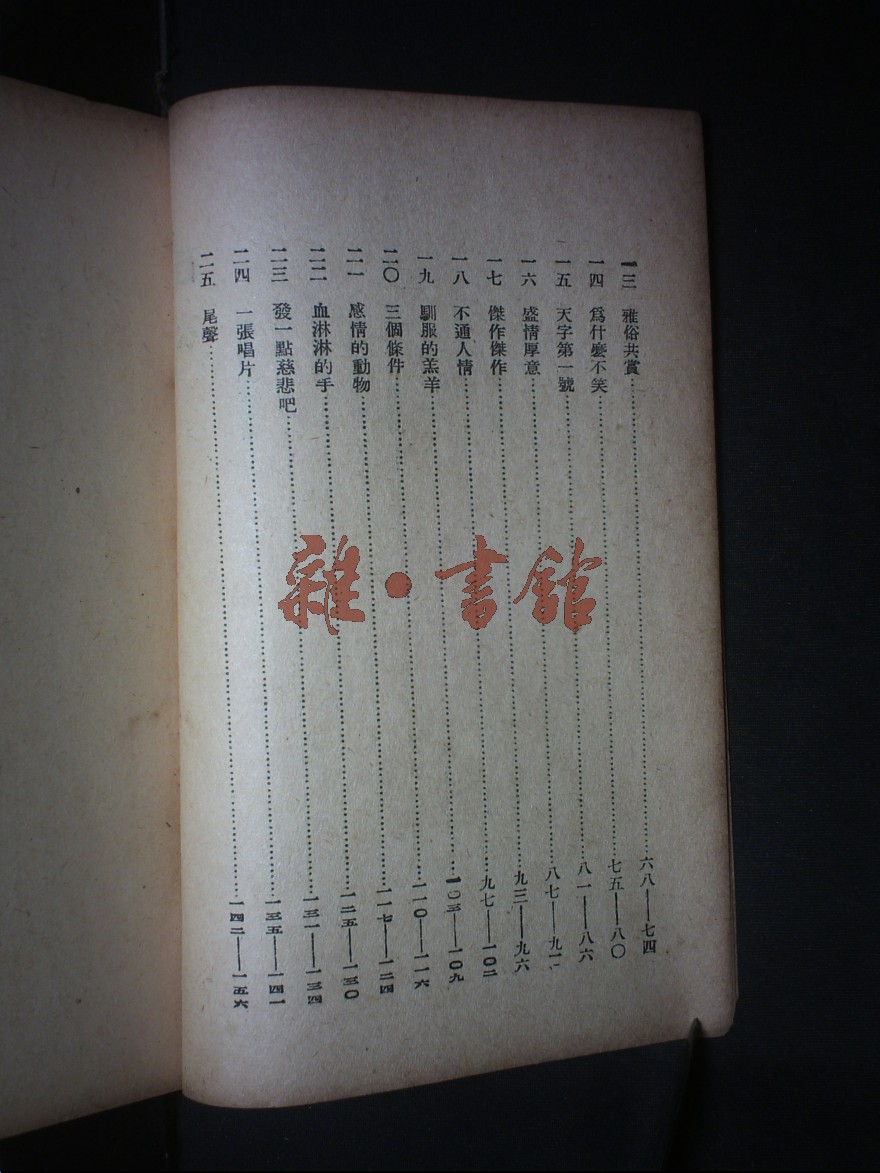 一三　雅俗共賞……六八——七四
一四　爲什麼不笑……七五——八〇
一五　天字第一號……八一——八六
一六　盛情厚意……八七——九二
一七　傑作傑作……九三——九六
一八　不通人情……九七——一〇二
一九　馴服的羔羊……一〇三——一〇九
二〇　三個條件……一一〇——一一六
二一　感情的動物……一一七——一二四
二二　血淋淋的手……一二五——一三〇
二三　發一點慈悲吧……一三一——一三四
二四　一張唱片……一三五——一四一
二五　尾聲……一四二——一五六
雜·書館